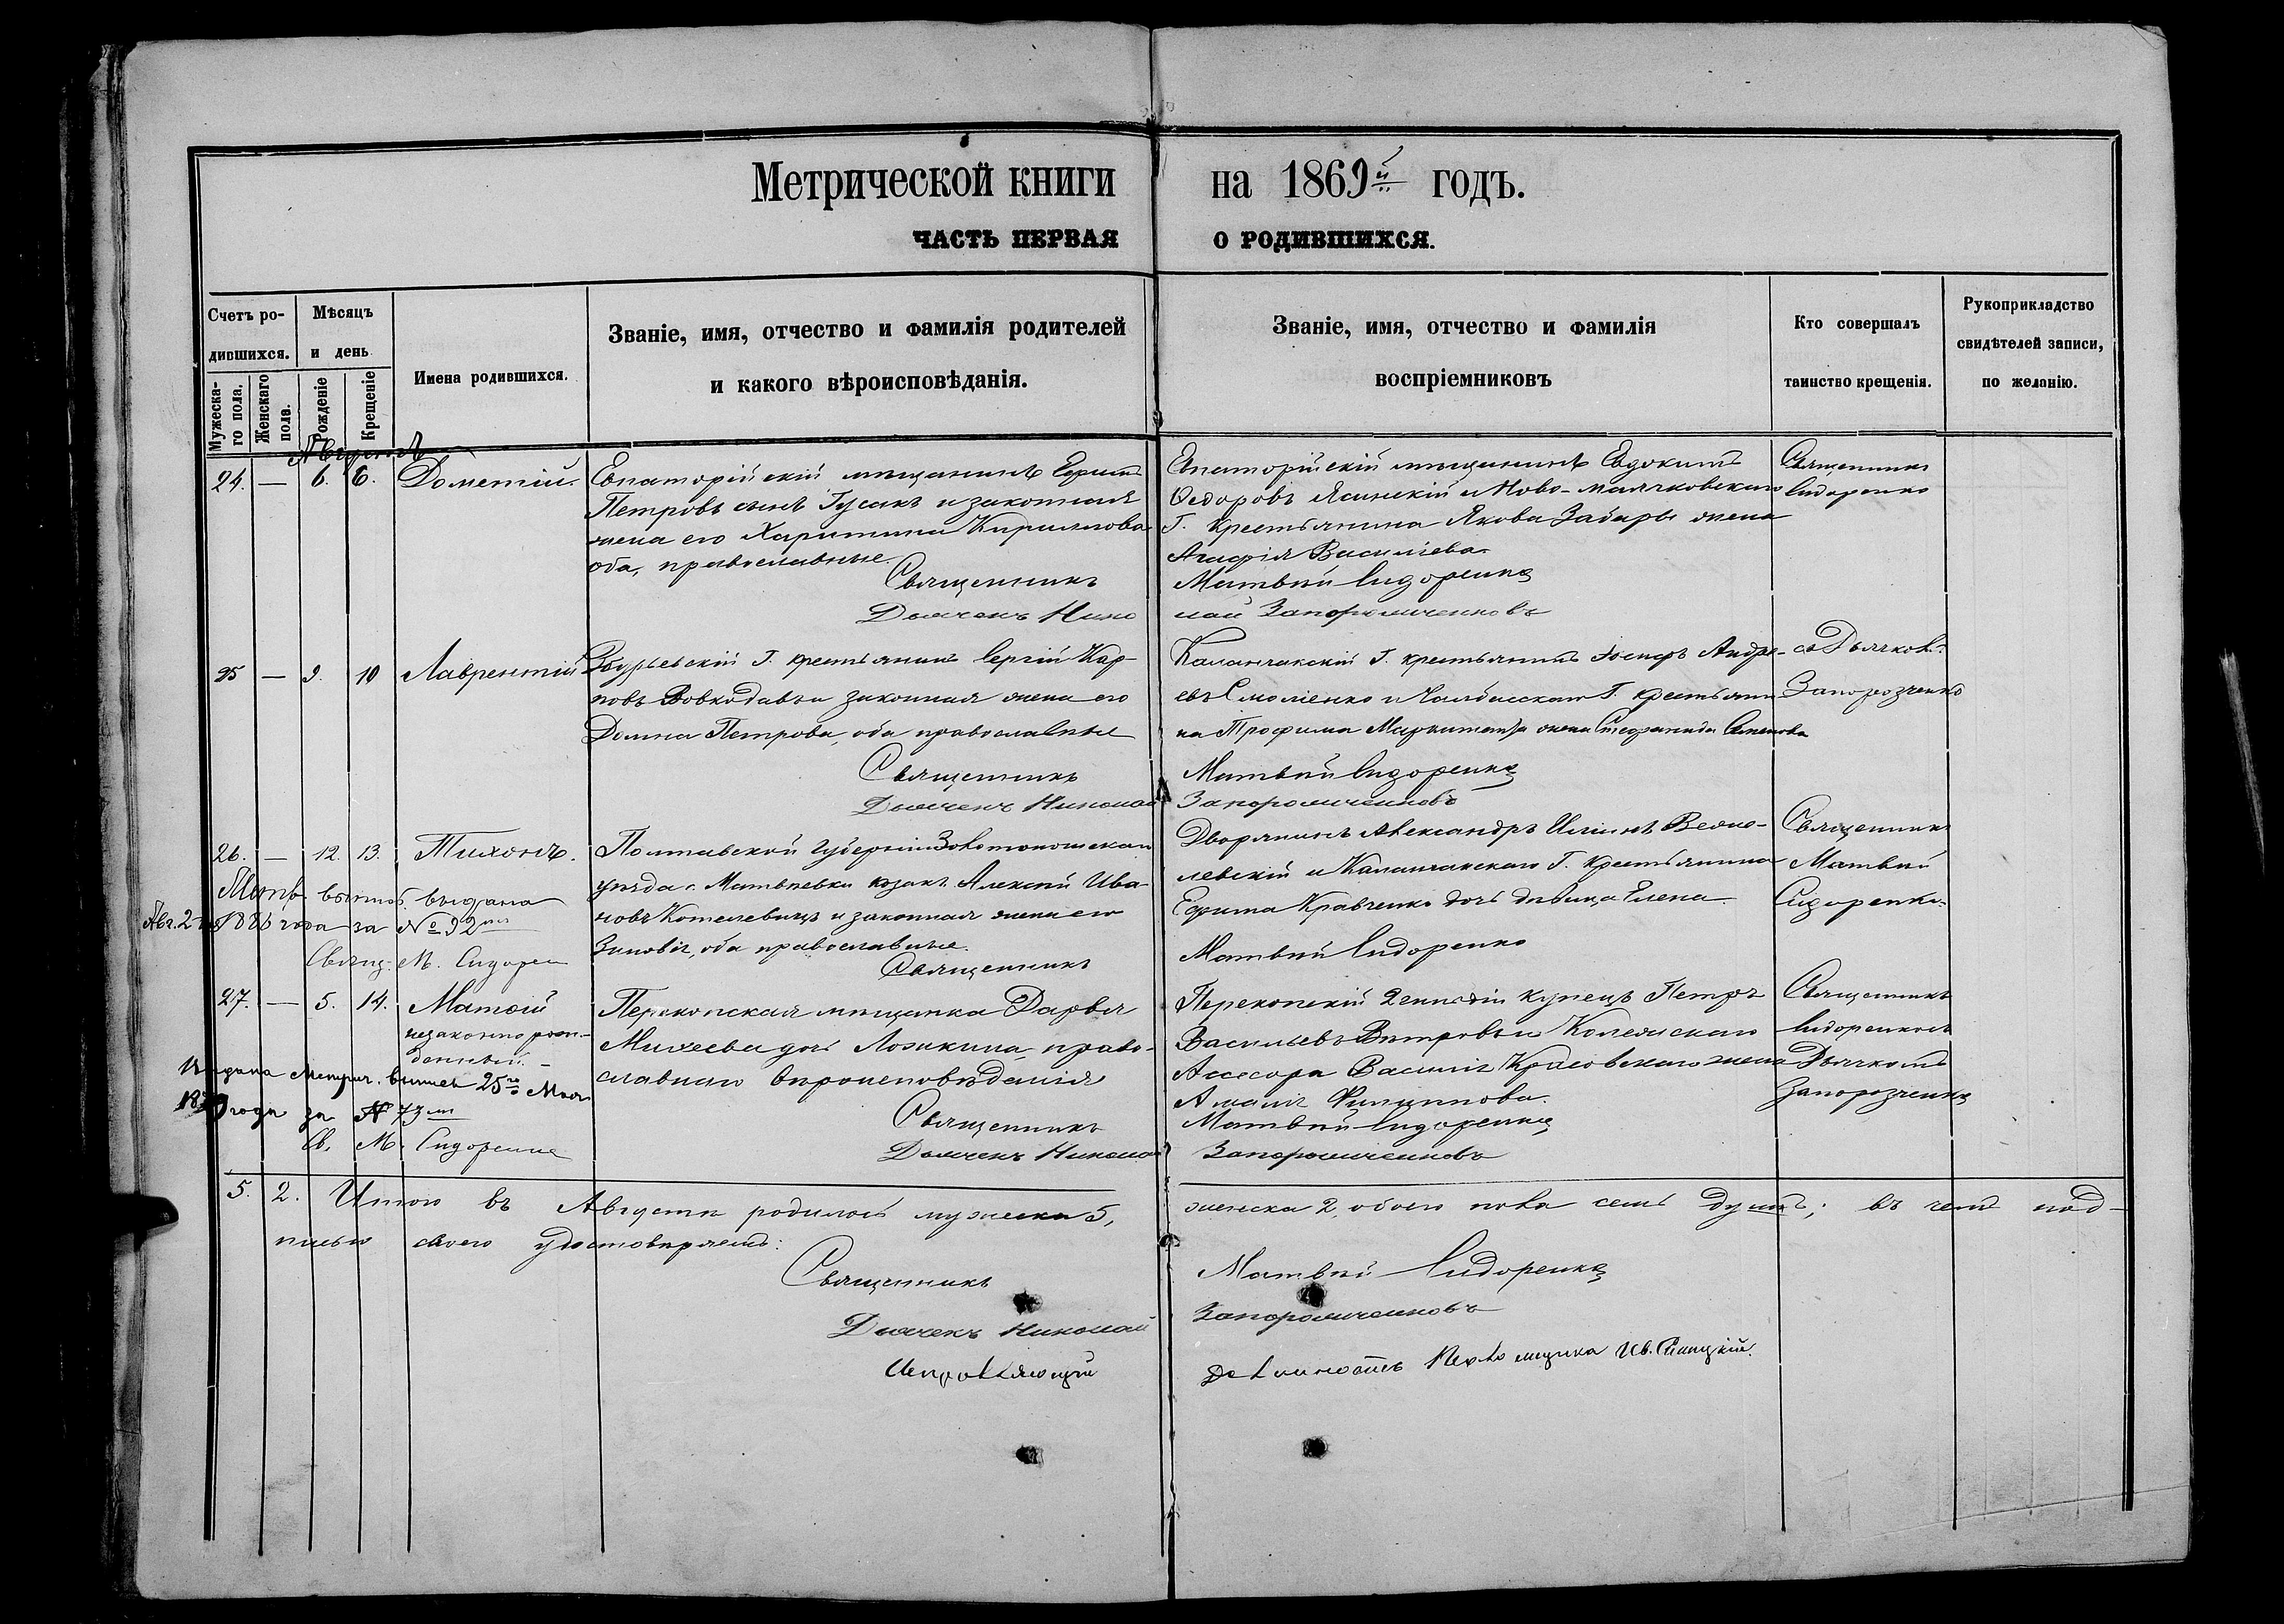 Метрической книги на 1869й годъ.
ЧАСТЬ ПЕРВАЯ О РОДИВШИХСЯ.
Счетъ ро-
дившихся.
Мѣсяцъ
и день
Мужеска-
го пола.
Женскаго
пола.
Рожденіе
Крещеніе
Имена родившихся.
Званіе, имя, отчество и фамилія родителей
и какого вѣроисповѣданія.
Званіе, имя, отчество и фамилія
воспріемниковъ
Кто совершалъ
таинство крещенія.
Рукоприкладство
свидѣтелей записи,
по желанію.
Августъ
24. — 6. 6. Дометій.
Евпаторійскій мѣщанинъ Ефимъ
Петровъ сынъ Гусакъ и законная
жена его Харитина Кириллова
оба, православные.
Священникъ
Дьячекъ Нико
Евпаторійскій мѣщанинъ Евдокимъ
Ѳедоровъ Ясинскій и Ново-маячковскаго
Г. крестьянина Якова Забары жена
Агафія Васильева.
Матвѣй Сидоренко
лай Запорожченковъ
Священникъ
Сидоренко
25 — 9. 10 Лаврентій
Збурьевскій Г. крестьянинъ Сергій Кар-
повъ Вовкодавъ и законная жена его
Домна Петрова, оба православные
Священникъ
Дьячекъ Николай
Каланчакскій Г. крестьянинъ Іосифъ Андре-
евъ Смоленко и Чалбасскаго Г. крестьяни
на Трофима жена Стефанида Семенова
Матвѣй Сидоренко
Запорожченковъ
съ Дьячков.
Запорозченко
26. — 12. 13. Тихонъ.
Полтавской Губерніи Золотоношскаго
уѣзда с. Матвѣевки козакъ Алексѣй Ива-
новъ Котелевецъ и законная жена его
Зиновія, оба православные.
Священникъ
Дворянинъ Александръ Ильинъ
левскій и Каланчакскаго Г. крестьянина
Ефима Кравченко дочь дѣвица Елена
Матвѣй Сидоренко
Священникъ
Матвѣй
Сидоренко.
выдана
1886 года за № 92мъ
Свящ: М. Сидорен
27. — 5. 14. Матѳій
незаконнорож-
денный. —
Выдана Метрич. 25го
года за № 73мъ
Св. М. Сидоренко
Перекопская мѣщанка Дарья
Михеева дочь Ложкина, право-
славнаго вѣроисповѣданія
Священникъ
Дьячекъ Николай
Перекопскій 2 гильдіи купецъ Петръ
Васильевъ Вѣтровъ и Колежскаго
Ассесора Василія Красовскаго жена
Амалія Филиппова.
Матвѣй Сидоренко
Запорожченковъ
Священникъ
Сидоренко съ
Дьячкомъ
Запорозченко
5. 2. Итого въ Августѣ родилось мужеска 5, женска 2, обоего пола семь душъ; въ чемъ под-
писью своею удостовѣряемъ:
Священникъ Матвѣй Сидоренко
Дьячекъ Николай Запорожченковъ
Исправляющій должность Ив.